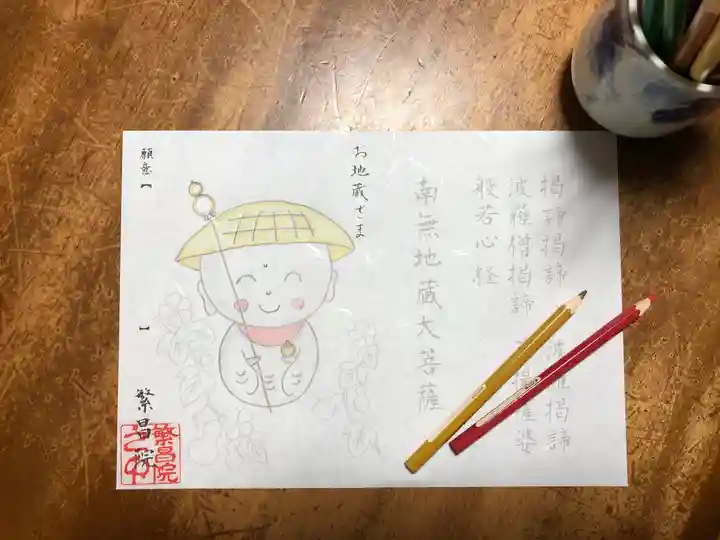 羯諦羯諦 波羅羯諦
波羅僧羯諦 菩提薩婆
般若心経
南無地蔵大菩薩
お地蔵さま
願意【 】
繁昌院
繁昌院